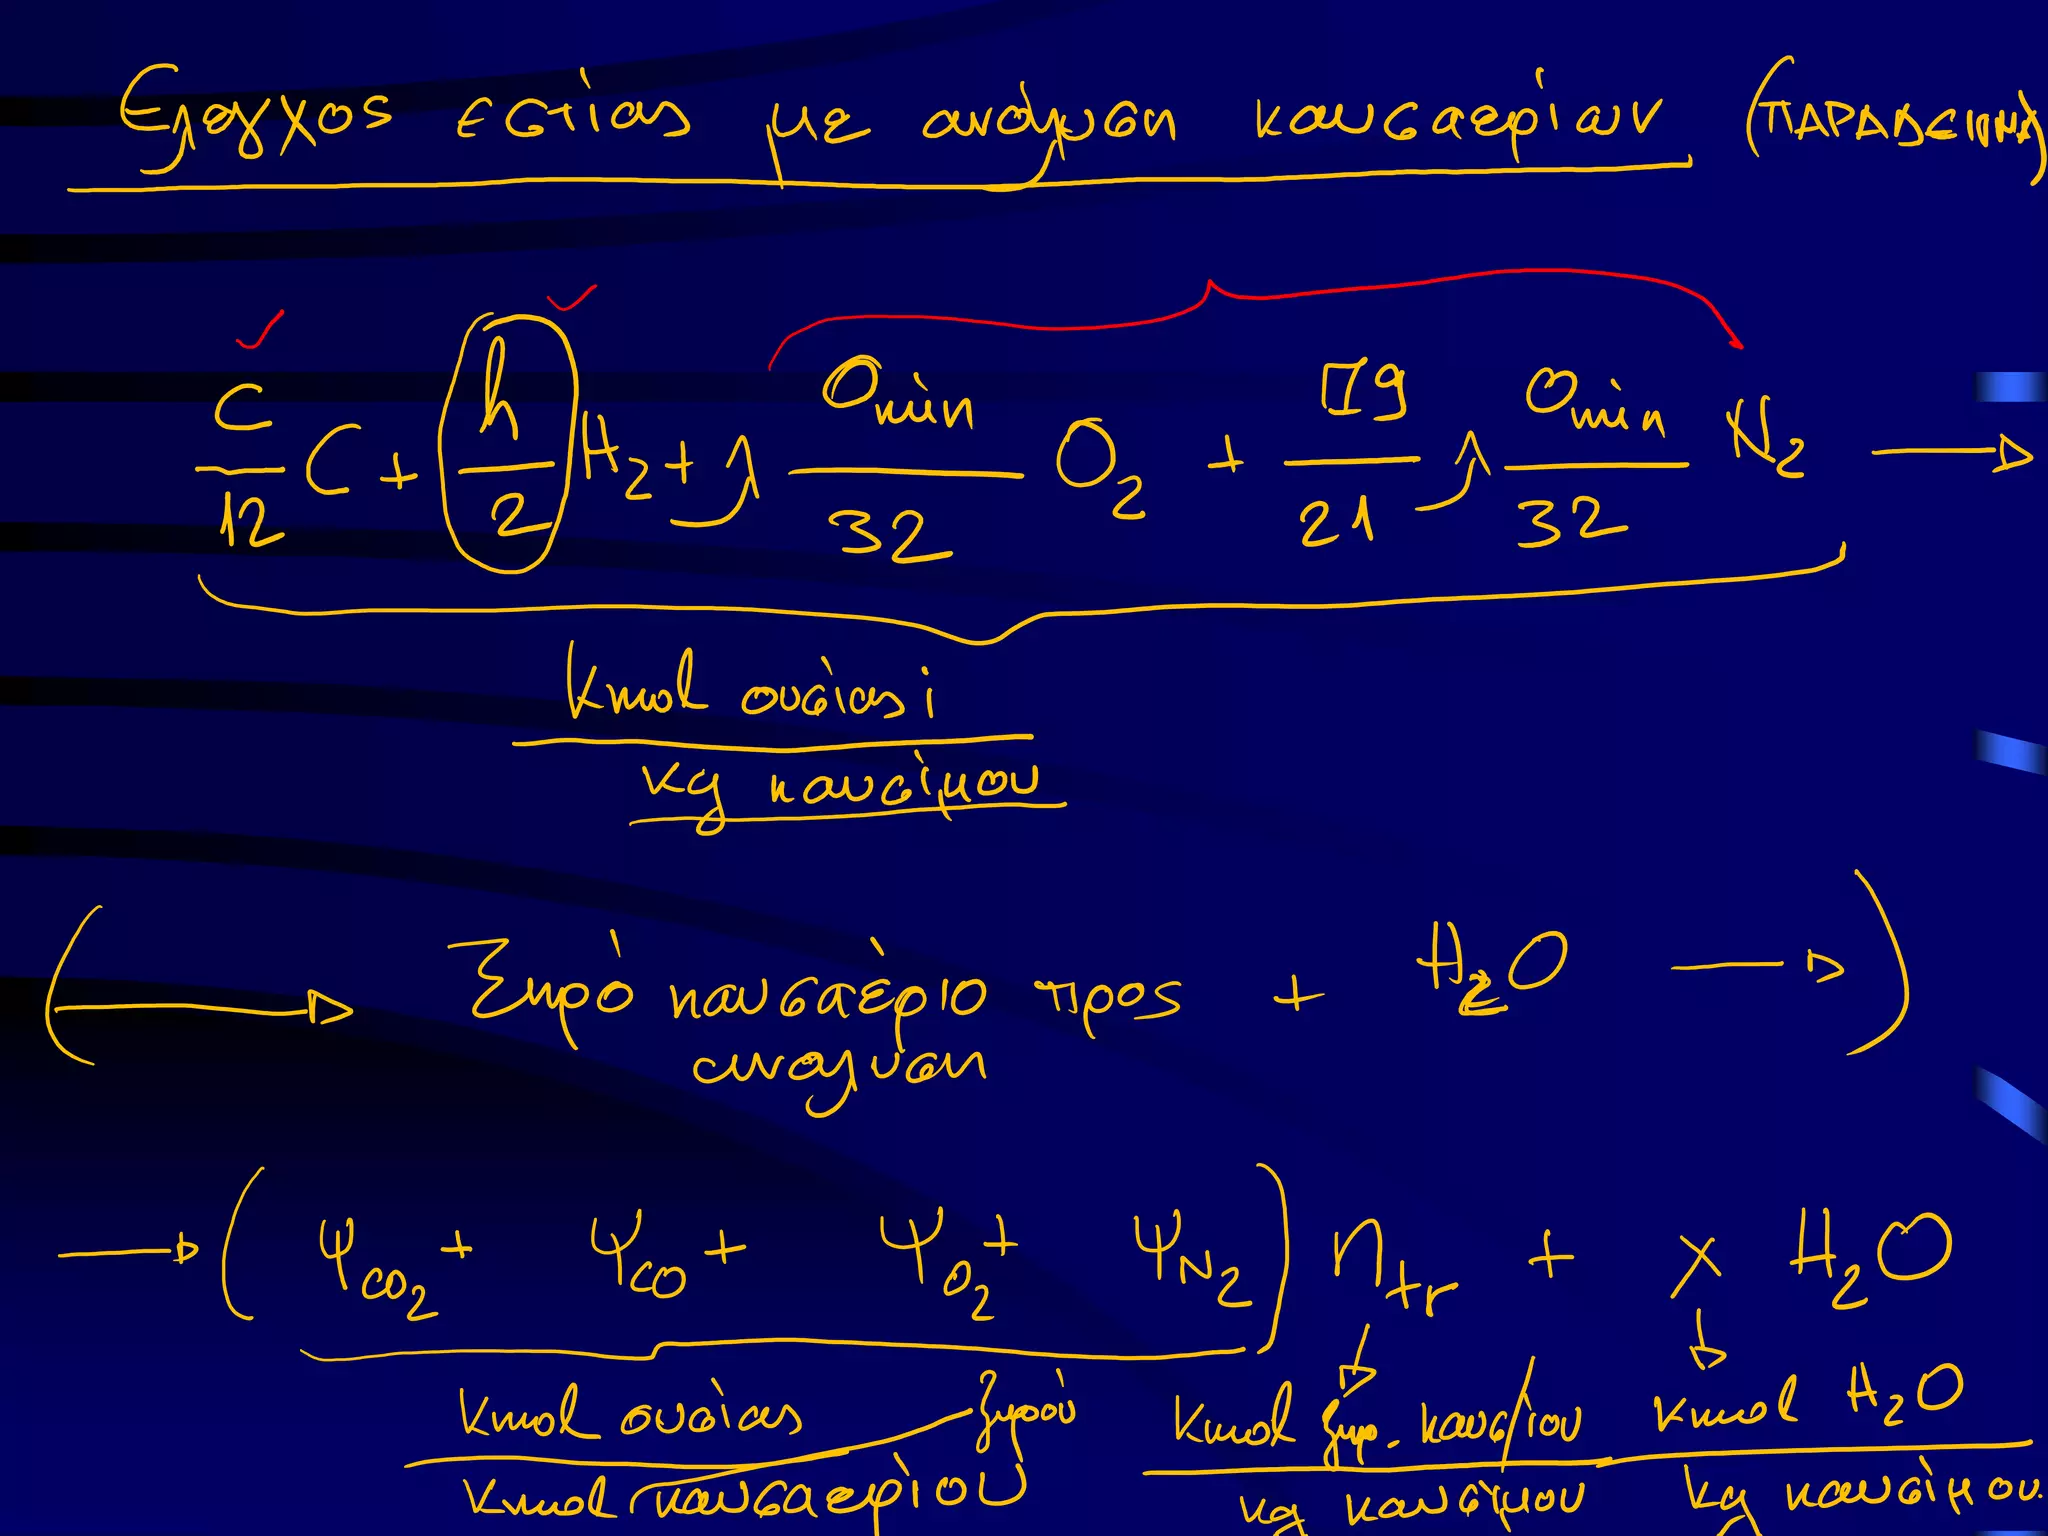 Ελεγχος εστίας με ανάλυση καυσαερίων (ΠΑΡΑΔΕΙΓΜΑ)
c/12 C + h/2 H₂ + λ Omin/32 O₂ + 79/21 λ Omin/32 N₂ →
kmol ουσίας i
kg καυσίμου
( → Ξηρό καυσαέριο προς + H₂O → )
ανάλυση
→ ( ΨCO₂ + ΨCO + ΨO₂ + ΨN₂ ) ntr + x H₂O
kmol ουσίας / kmol ξηρού καυσαερίου
kmol ξηρ. καυσ/ιου / kg καυσίμου
kmol H₂O / kg καυσίμου.